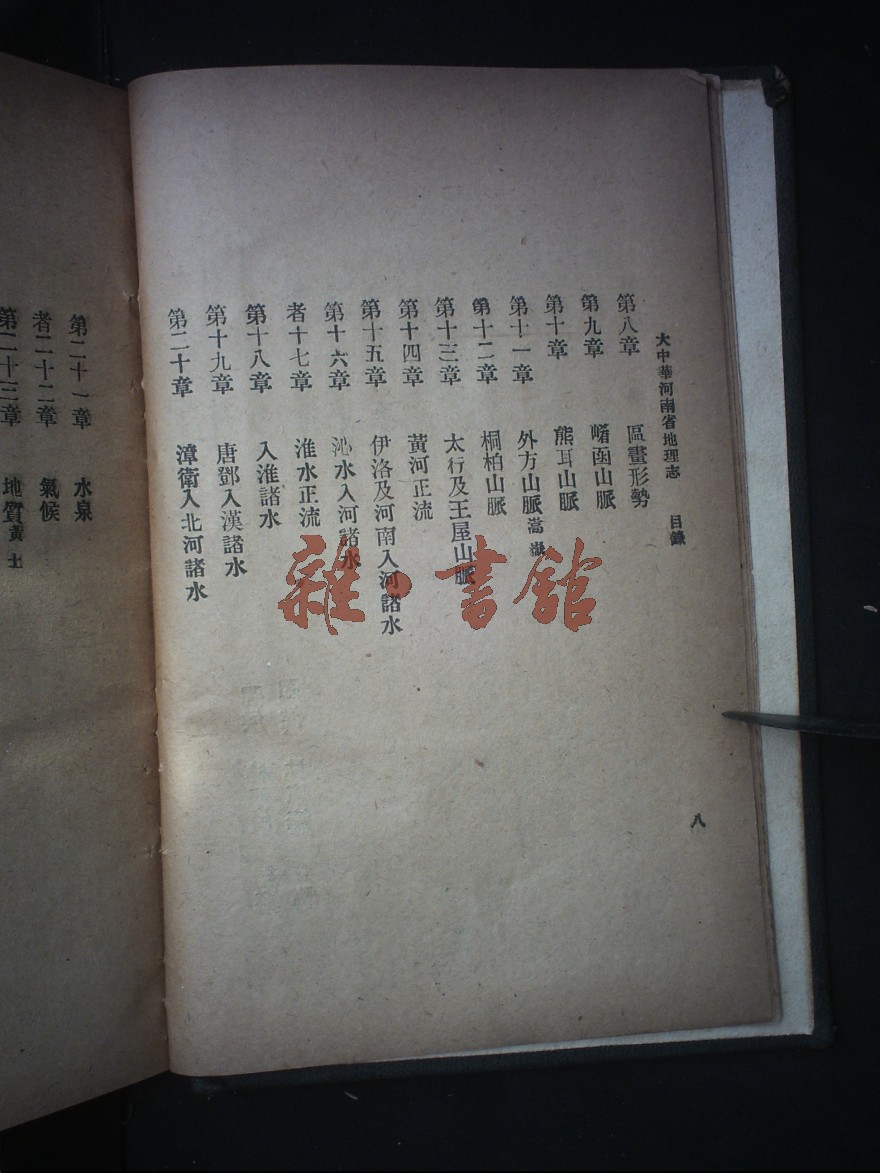 大中華河南省地理志 目錄
第八章 區畫形勢
第九章 崤函山脈
第十章 熊耳山脈
第十一章 外方山脈嵩嶽
第十二章 桐柏山脈
第十三章 太行及王屋山脈
第十四章 黃河正流
第十五章 伊洛及河南入河諸水
第十六章 沁水入河諸水
者十七章 淮水正流
第十八章 入淮諸水
第十九章 唐鄧入漢諸水
第二十章 漳衛入北河諸水
八
第二十一章 水泉
者二十二章 氣候
第二十三章 地質黃土
雜書館